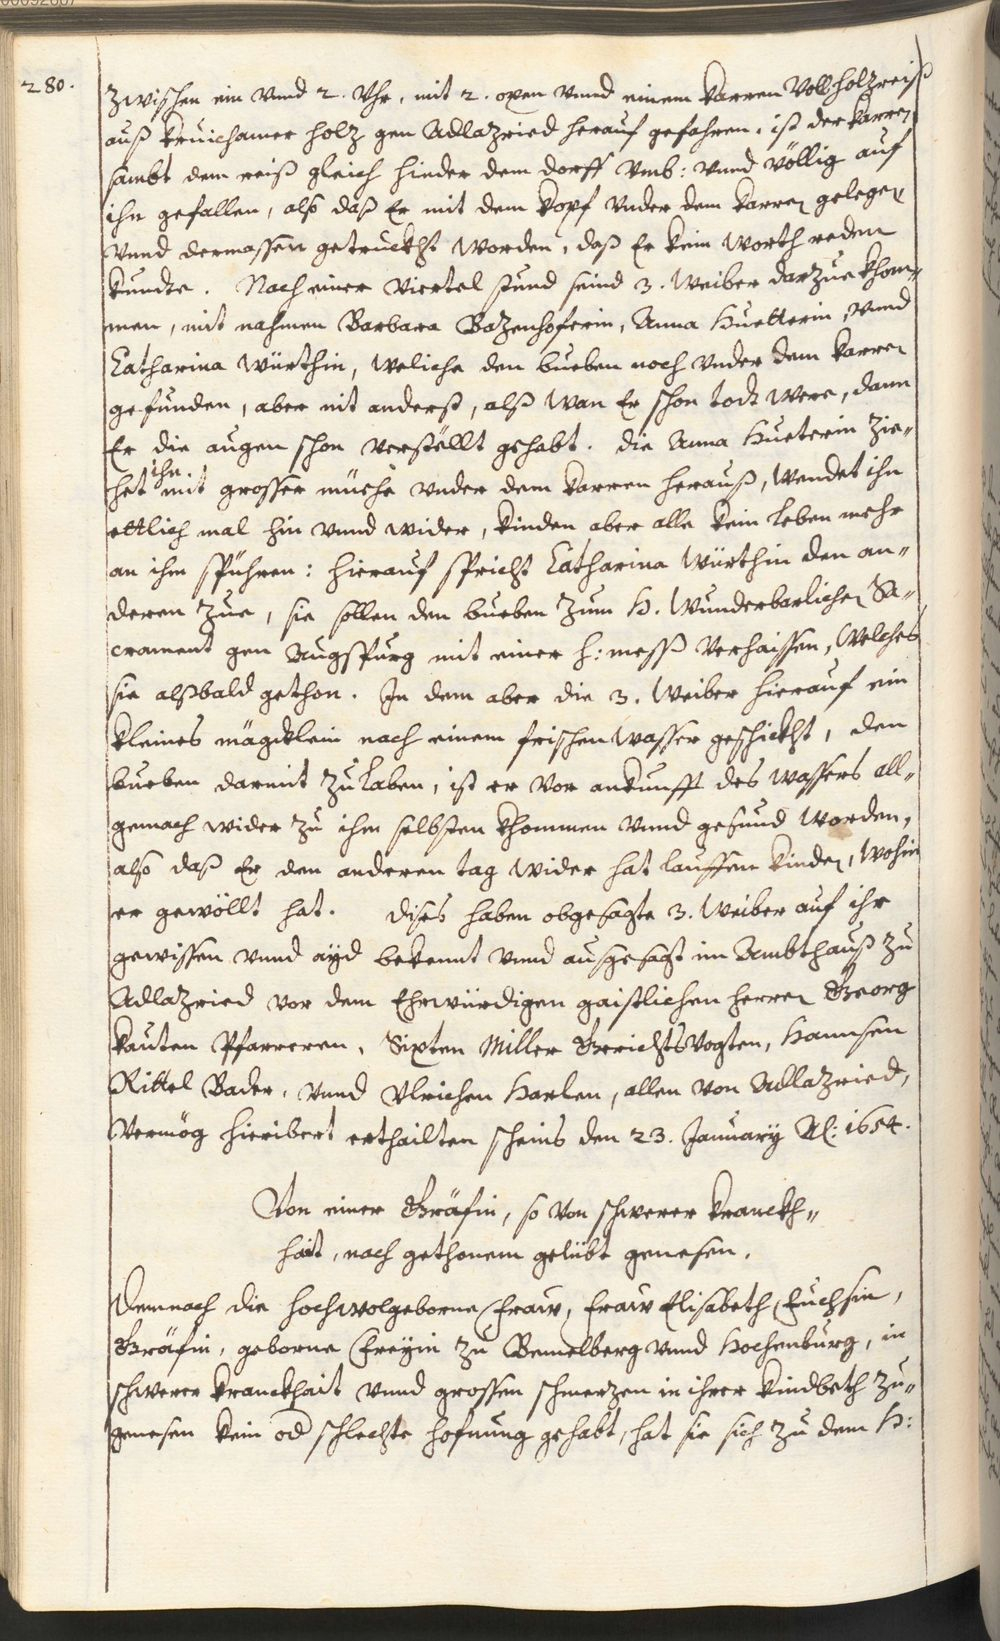 280.
zwischen ein vnnd 2. Vhr, mit 2. oxen vnnd einem karren voll holzreiß
auß kruichamer holz gen Adlazried herauf gefahren, ist der karren
sambt dem reiß gleich hinder dem dorff vmb: vnnd völlig auf
ihn gefallen, also daß Er mit dem kopf vnder dem karren gelegen
vnnd dermassen getruckht worden, daß Er kein worth reden
kundte. Nach einer viertel stund seind 3. Weiber darzue khom„
men, mit nahmen Barbara Bazenhoferin, Anna Huetterin, vnnd
Catharina Würthin, weliche den bueben noch vnder dem karren
gefunden, aber nit anderß, alß wan Er schon todt were, dann
Er die augen schon verstöllt gehabt. die Anna Hueterin zie„
het ihn mit grosser müehe vnder dem karren herauß, wendet ihn
ettlich mal hin vnnd wider, kinden aber alle kein leben mehr
an ihm spühren: hierauf spricht Catharina Würthin den an„
deren zue, sie sollen den bueben zum H. Wunderbarlichen Sa„
crament gen Augspurg mit einer h: mess verhaissen, welches
sie alßbald gethon. In dem aber die 3. Weiber hierauf ein
kleines mägdlein nach einem frischen wasser geschickht, den
bueben darmit zu laben, ist er vor ankunfft des wassers all„
gemach wider zu ihm selbsten khommen vnnd gesund worden,
also daß Er den anderen tag wider hat lauffen kinden, wohin
er gewöllt hat. dises haben obgesagte 3. Weiber auf ihr
gewissen vnnd ayd bekennt vnnd ausgesagt im Ambthauß zu
Adlazried vor dem Ehrwürdigen gaistlichen herren Georg
kauten Pfarreren, Sixten Miller Gerichtsvogten, Hannsen
Rittel Bader, vnnd Vlrichen Harlen, allen von Adlazried,
vermög hieribert erthailten scheins den 23. January A: 1654.
Von einer Gräfin, so von schwerer kranckh„
hait, nach gethonem gelübt genesen.
Demnach die hochwolgeborne fraw, fraw Elisabeth
Gräfin, geborne freyin zu Bemelberg vnnd Hochenburg, in
schwerer kranckhait vnnd grossen schmerzen in ihrer kindbeth zu„
genesen kein od schlechte hofnung gehabt, hat sie sich zu dem H: